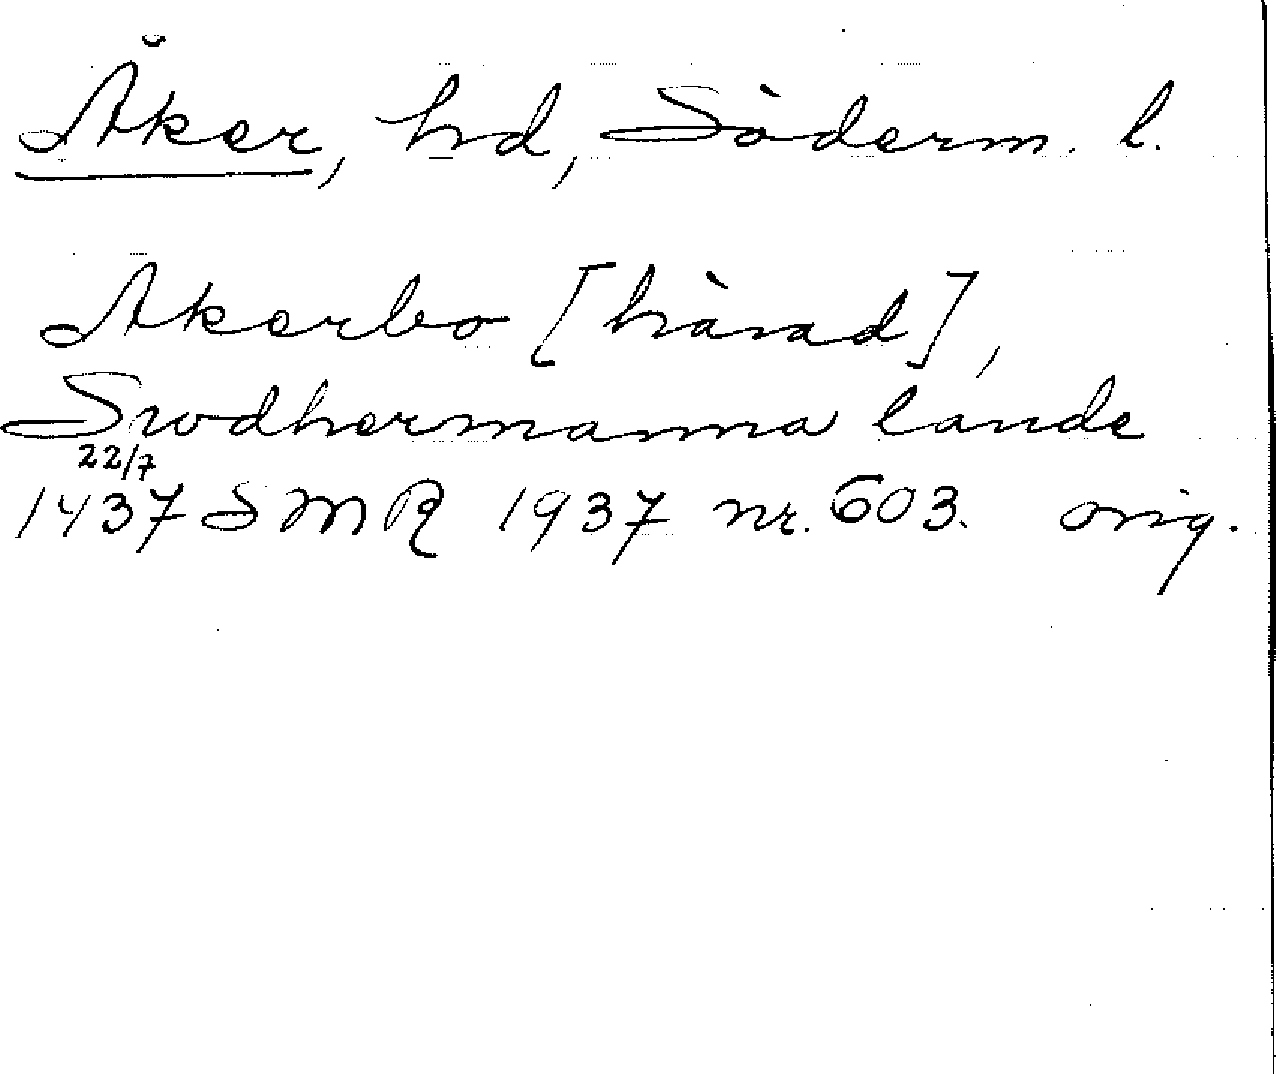 Åker, hd, Söderm. l.
Akerbo [härad],
Swdhermanna lande
22/7
1437 SMR 1937 nr. 603. orig.